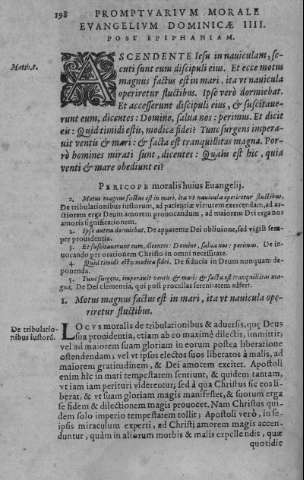 198 PROMPTVARIVM MORALE
EVANGELIVM DOMINICAE IIII.
POST EPIPHANIAM.
Math. 8.
ASCENDENTE Iesu in nauiculam, se-
cuti sunt eum discipuli eius. Et ecce motus
magnus factus est in mari, ita vt nauicula
operiretur fluctibus. Ipse verò dormiebat.
Et accesserunt discipuli eius, & suscitaue-
runt eum, dicentes: Domine, salua nos: perimus. Et dicit
eis: Quid timidi estis, modicæ fidei? Tunc surgens impera-
uit ventis & mari: & facta est tranquillitas magna. Por-
rò homines mirati sunt, dicentes: Qualis est hic, quia
venti & mare obediunt ei?
PERICOPE moralis huius Euangelij.
1. Motus magnus factus est in mari, ita vt nauicula operiretur fluctibus.
De tribulationibus iustorum, ad patientiæ virtutem exercendam, ad
ctiorem erga Deum amorem prouocandum, ad maiorem Dei erga nos
amoris significationem.
2. Ipse autem dormiebat. De apparente Dei obliuione, sed vigili sem-
per prouidentia.
3. Et suscitauerunt eum, dicentes: Domine, salua nos: perimus. De in-
uocando per orationem Christo in omni necessitate.
4. Quid timidi estis modicæ fidei. De fiducia in Deum nunquam de-
ponenda.
5. Tunc surgens, imperauit ventis & mari: & facta est tranquillitas ma-
gna. De Dei clementia, qui post procellas serenitatem affert.
1. Motus magnus factus est in mari, ita vt nauicula ope-
riretur fluctibus.
De tribulatio-
nibus iustorū.
LOCVS moralis de tribulationibus & aduersis, quę Deus
sua prouidentia, etiam ab eo maximè dilectis, immittit,
vel ad maiorem suam gloriam in eorum postea liberatione
ostendendam, vel vt ipsos electos suos liberatos à malis, ad
maiorem gratitudinem, & Dei amorem excitet. Apostoli
enim hîc in mari tempestatem sentiunt, & quidem tantam,
vt iam iam perituri viderentur; sed à qua Christus sic eos li-
berat, & vt suam gloriam magis manifestet, & suorum erga
se fidem & dilectionem magis prouocet. Nam Christus qui-
dem solo imperio tempestatem tollit; Apostoli verò, in se-
ipsis miraculum experti, ad Christi amorem magis accen-
duntur, quàm in aliorum morbis & malis expellendis, quæ
quotidie